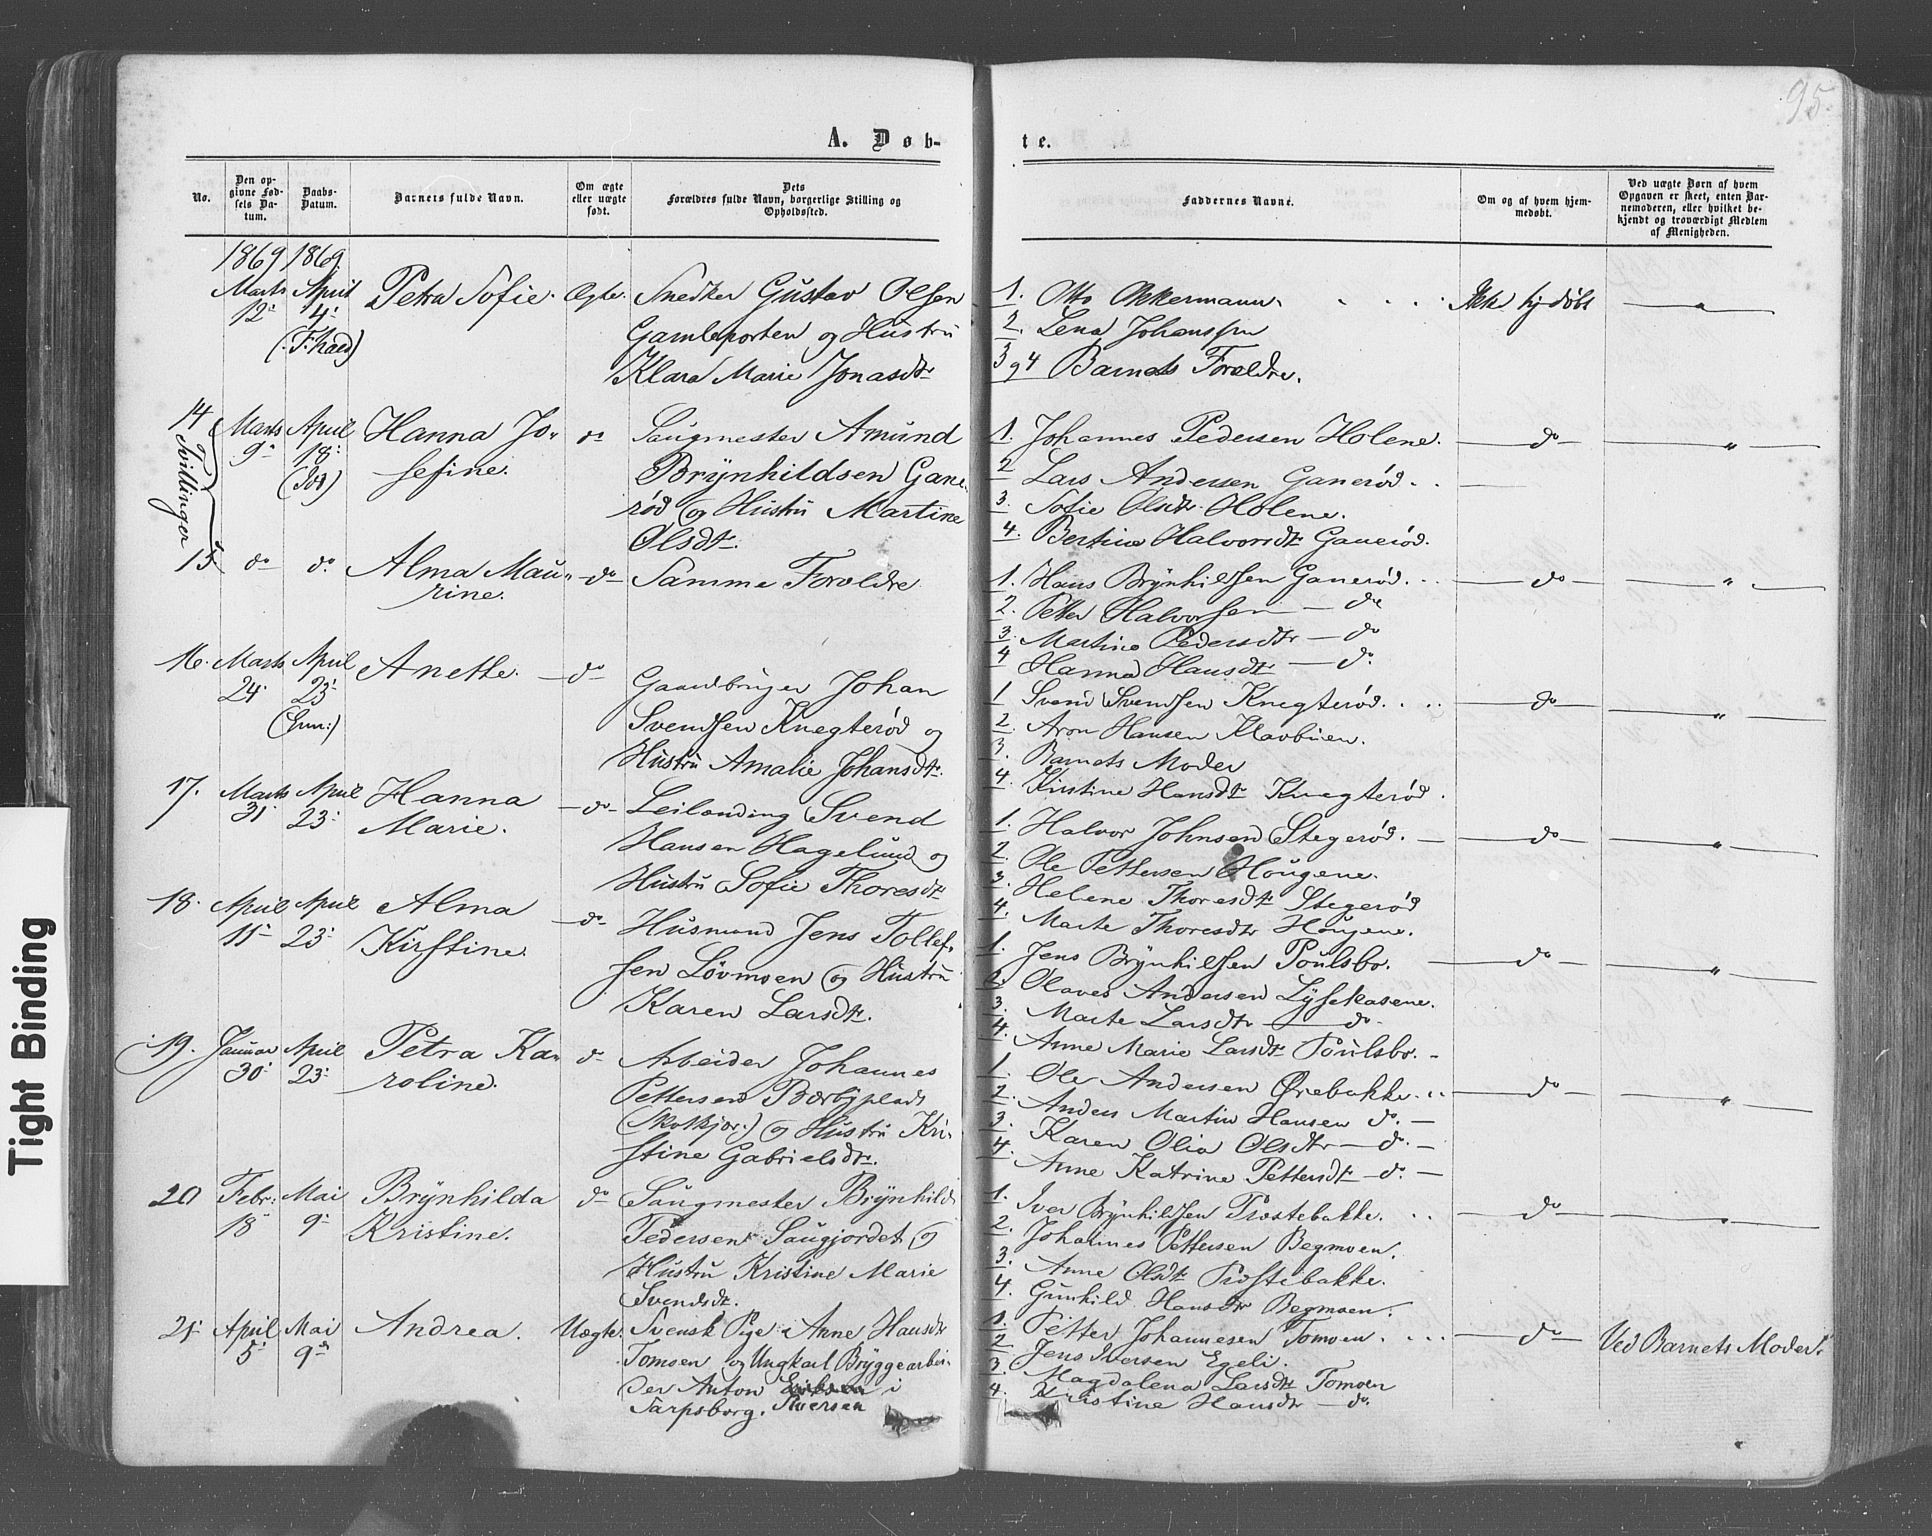 95.
A. Døb-
te.
No.
Den opgivne Fødsels Datum.
Daabs-Datum.
Barnets fulde Navn.
Om ægte eller uægte født.
Dets Forældres fulde Navn, borgerlige Stilling og Opholdssted.
Faddernes Navne.
Om og af hvem hjemmedøbt.
Ved uægte Børn af hvem Opgaven er skeet, enten Barnemoderen, eller hvilket bekjendt og troværdigt Medlem af Menigheden.
1869 1869
Marts April Petra Sofie. Ægte. Snedker Gustav Olsen
12te 4de Gamleporten og Hustru
Klara Marie Jonasdtr
1. Otto Akkermann. Ikke hj døbt "
2. Lena Johanssen
3 og 4 Barnets Forældre.
Tvillinger
14 Marts April Hanna Jo- do Saugmester Amund
9de 18de sefine. Brÿnhildsen Gane-
rød og Hustru Martine
Olsdtr.
1. Johannes Pedersen Holene. do "
2 Lars Andersen Ganerød.
3. Sofie Olsdtr Holene.
4. Bertine Halvorsdtr Ganerød.
15 do do. Alma Mau- do Samme Forældre
rine.
1. Hans Brÿnhilssen Ganerød. do "
2. Petter Halvorsen do
3. Martine Pedersdtr do
4 Hanna Hansdtr do.
16. Marts April Anette. do Gaardbruger Johan
24. 23. Svendsen Knegterød og
Hustru Amalie Johansdtr.
1 Svend Svendsen Knegterød. do "
2. Aron Hansen Klavbuen.
3. Barnets Moder
4. Kirstine Hansdtr Knegterød.
17. Marts April Hanna do Leilænding Svend
31. 23. Marie. Hansen Hagelund og
Hustru Sofie Thoresdtr
1. Halvor Johnsen Stegerød. do "
2. Ole Pettersen Hougene.
3. Helene Thoresdtr Stegerød
4. Marte Thoresdtr Hougene.
18. April April Alma do Husmand Jens Tollef-
11te 23. Kirstine. sen Løvmoen og Hustru
Karen Larsdtr.
1. Jens Brÿnhilssen Poulsbo. do "
2. Olaves Andersen Lÿsekasene.
3. Marte Larsdtr do.
4. Anne Marie Larsdtr Poulsbo.
19. Januar April Petra Ka- do Arbeider Johannes
30. 23. roline. Pettersen Bærbÿplads
(Skolkjor.) og Hustru Kri-
stine Gabrielsdtr.
1. Ole Andersen Ørebakke. do "
2. Anders Martin Hansen do.
3. Karen Olia Olsdtr do.
4. Anne Katrine Pettersdtr do.
20 Febr: Mai Brÿnhilda do Saugmester Brÿnhild
18 9de Kristine. Pedersen Saugjordet og
Hustru Kristine Marie
Svendsdtr.
1. Iver Brÿnhilssen Præstebakke. do "
2. Johannes Pettersen Begmoen.
3. Anne Olsdtr Præstebakke.
4. Gunhild Hansdtr Begmoen.
21 April Mai Andrea. Uægte. Svensk Pige Anne Hansdtr
5. 9de Tomoen og Ungkarl Brÿggearbei-
der Anton i
Sarpsborg. Iversen
1. Petter Johannesen Tomoen. do Ved Barnets Moder.
2 Jens Iversen Egeli.
3. Magdalena Larsdtr Tomoen
4. Kristine Hansdtr do.
Tight Binding